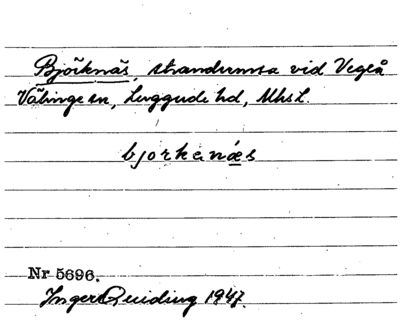 Björknäs, strandremsa vid Vegeå
Välinge sn, Luggude hd, Mhsl.
bjorkenæs
Nr 5696.
Inger Quiding 1947.